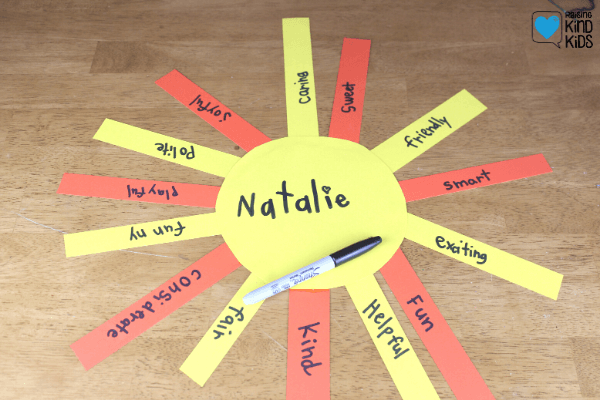 RAISING
KIND
KIDS
Natalie
caring
sweet
friendly
smart
exciting
Fun
Helpful
Kind
fair
considerate
funny
Playful
Polite
Joyful
Sharpie